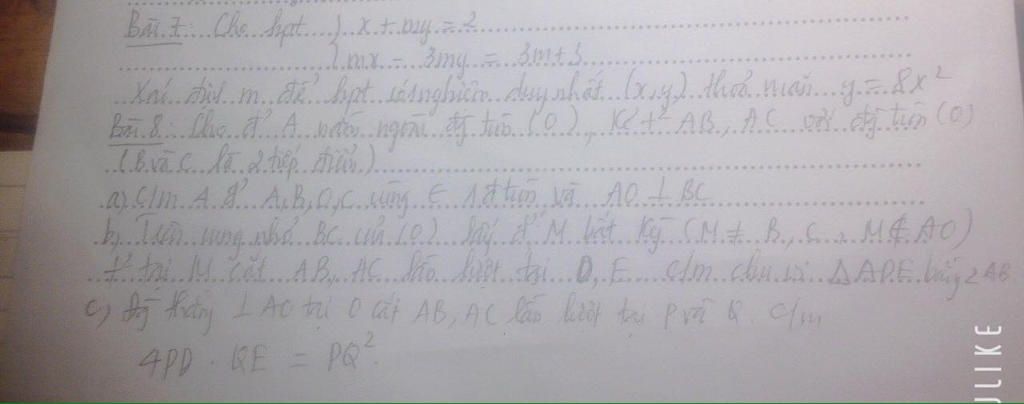 Bài 7: Cho hpt { x + my = 2
{ mx - 3my = 3m+3
Xác định m để hpt có nghiệm duy nhất (x,y) thoả mãn y = 8x²
Bài 8: Cho đ' A nằm ngoài đg tròn (O), kẻ t² AB, AC với đg tròn (O)
(B và C là 2 tiếp điểm)
a) C/m 4 đ' A,B,O,C cùng ∈ 1 đ tròn và AO ⊥ BC
b) Trên cung nhỏ BC của (O) lấy đ' M bất kỳ (M ≠ B, C, M ∉ AO)
t² tại M cắt AB, AC lần lượt tại D, E. C/m chu vi △ADE bằng 2AB
c) Đg thẳng ⊥ AO tại O cắt AB, AC lần lượt tại P và Q. C/m
4PD . QE = PQ².
ULIKE